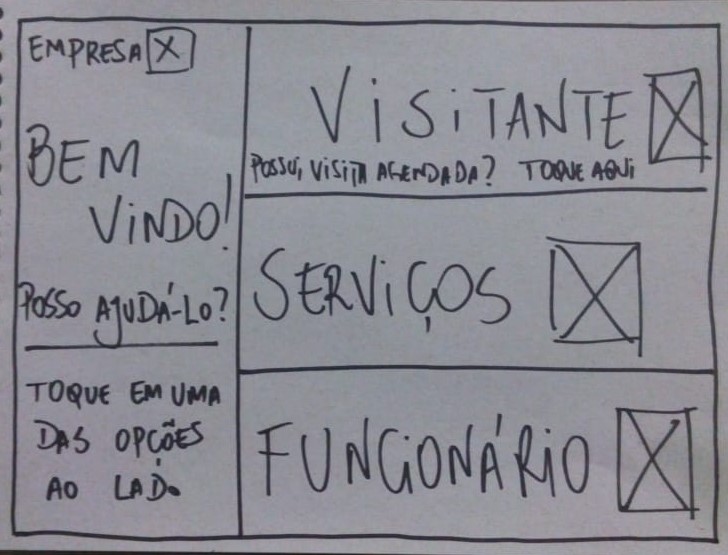 EMPRESA
BEM
VINDO!
POSSO AJUDÁ-LO?
TOQUE EM UMA
DAS OPÇÕES
AO LADO
VISITANTE
POSSUI VISITA AGENDADA? TOQUE AQUI
SERVIÇOS
FUNCIONÁRIO